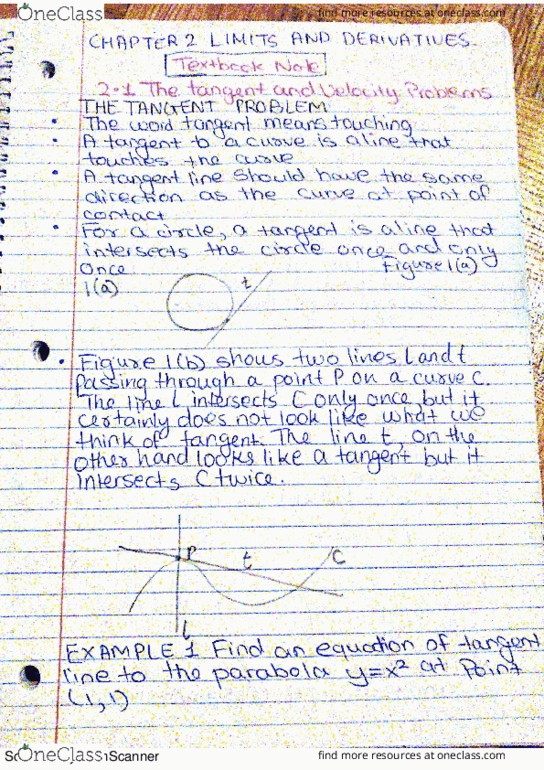 OneClass
find more resources at oneclass.com
CHAPTER 2 LIMITS AND DERIVATIVES
Textbook Note
2.1 The tangent and Velocity Problems
THE TANGENT PROBLEM
• The word tangent means touching
• A tangent to a curve is a line that
touches the curve
• A tangent line should have the same
direction as the curve at point of
contact
• For a circle, a tangent is a line that
intersects the circle once and only
once
Figure 1(a)
1(a)
t
• Figure 1(b) shows two lines l and t
passing through a point P on a curve C.
The line l intersects C only once, but it
certainly does not look like what we
think of tangent. The line t, on the
other hand looks like a tangent but it
intersects C twice.
P
t
C
l
EXAMPLE 1 Find an equation of tangent
line to the parabola y=x² at Point
(1,1)
OneClass
Scanner
find more resources at oneclass.com